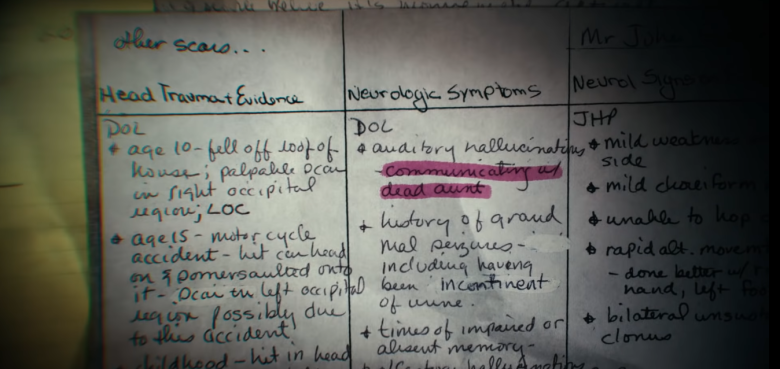 other scars...
Mr John
Head Trauma + Evidence
Neurologic Symptoms
Neurol Signs
DOL
* age 10 - fell off roof of
house; palpable scar
in right occipital
region; LOC
* age 15 - motorcycle
accident - hit car head
on & somersaulted onto
it - scar in left occipital
region possibly due
to this accident
childhood - hit in head
DOL
* auditory hallucinations
- communicating w/
dead aunt
* history of grand
mal seizures -
including having
been incontinent
of urine.
* times of impaired or
absent memory -
JHP
* mild weakness
side
* mild choreiform
* unable to hop
* rapid alt. movem
- done better w/ r
hand, left foo
* bilateral unsus
clonus